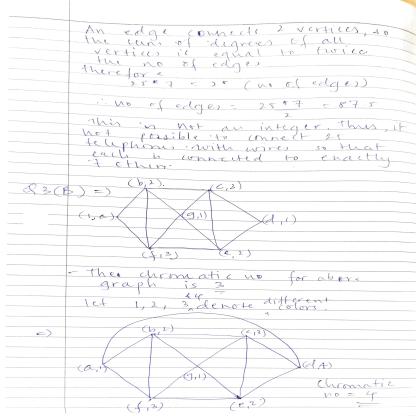 An edge connects 2 vertices, so
the sum of degrees of all
vertices is equal to twice
the no of edges
Therefore
25 * 7 = 2 * (no of edges)
∴ no of edges = 25 * 7 / 2 = 87.5
This is not an integer. Thus, it
not possible to connect 25
telephones with wires so that
each is connected to exactly
7 others.
Q3(B) =>
(b,2) (c,3)
(1,a) (g,1) (d,1)
(f,3) (e,2)
- The chromatic no for above
graph is 3
Let 1, 2, 3 & 4 denote different
colors.
=>
(b,2) (c,3)
(a,1) (g,1) (d,4)
(f,3) (e,2)
Chromatic
no = 4